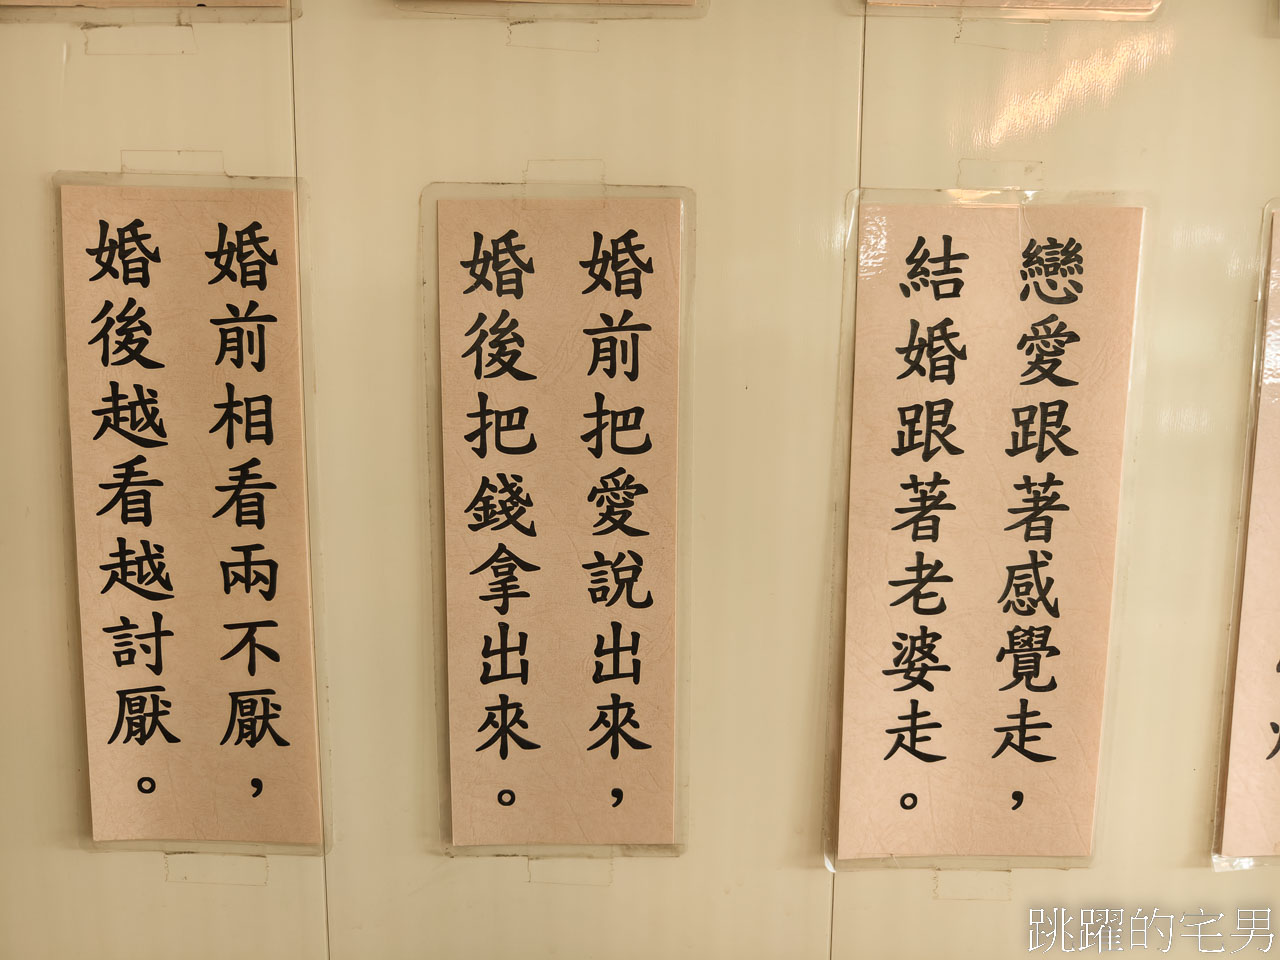 戀愛跟著感覺走，
結婚跟著老婆走。
婚前把愛說出來，
婚後把錢拿出來。
婚前相看兩不厭，
婚後越看越討厭。
跳躍的宅男